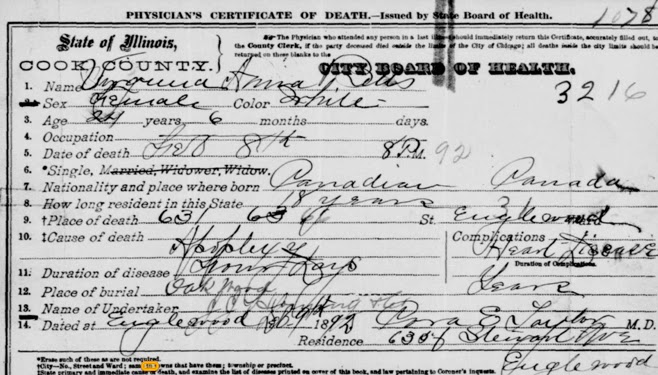 PHYSICIAN'S CERTIFICATE OF DEATH.—Issued by State Board of Health.
State of Illinois,
COOK COUNTY.
The Physician who attended any person in a last illness should immediately return this Certificate, accurately filled out, to
the County Clerk, if the party deceased died outside the limits of the City of Chicago; all deaths inside the city limits should be
returned on these blanks to the CITY BOARD OF HEALTH.
3216
1. Name Anna
2. Sex Female Color White
3. Age 24 years, 6 months days.
4. Occupation
5. Date of death Feb 8th 8 P.M. 92
6. *Single, Married, Widower, Widow.
7. Nationality and place where born Canadian Canada
8. How long resident in this State 18 years
9. †Place of death 631 63 St. Englewood
10. ‡Cause of death Apoplexy Complications Heart Disease
11. Duration of disease Four Days Duration of Complications Years
12. Place of burial Oakwood
13. Name of Undertaker
14. Dated at Englewood 9th 1892 Cora E Taylor M.D.
Residence Stewart Ave
Englewood
*Erase such of these as are not required.
†City—No., Street and Ward; towns that have them; township or precinct.
‡State primary and immediate cause of death, and examine the list of diseases printed on cover of this book, and law pertaining to Coroner's Inquests.